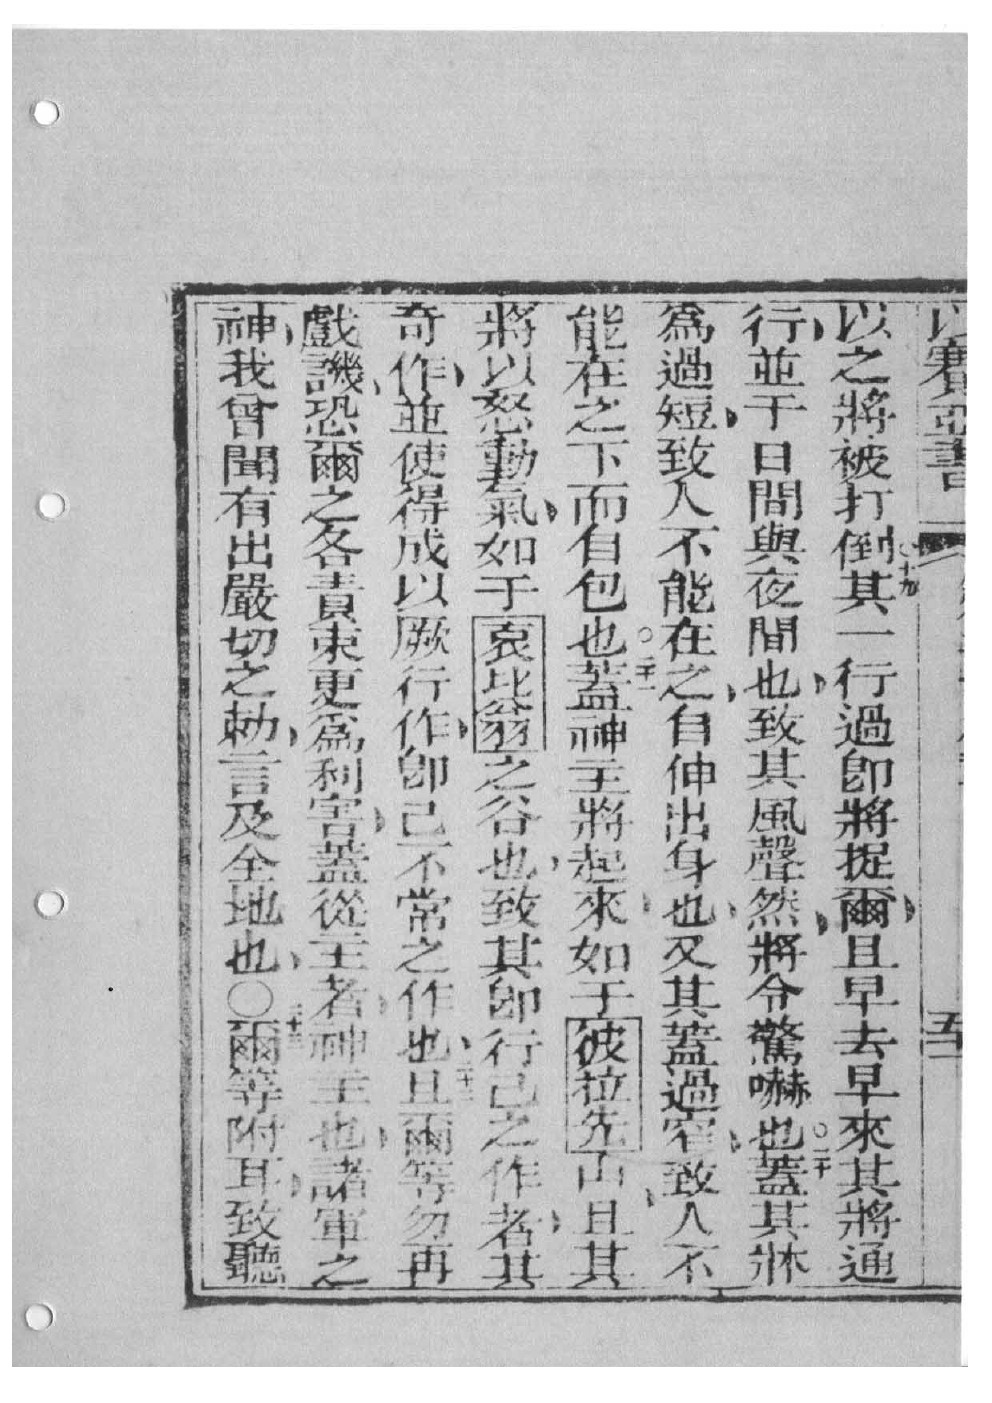 以賽亞書 五
以之將被打倒○十九其一行過卽將捉爾且早去早來其將通
行並于日間與夜間也致其風聲然將令驚嚇也○二十蓋其牀
爲過短致人不能在之自伸出身也又其蓋過窄致人不
能在之下而自包也○二十一蓋神主將起來如于彼拉先山且其
將以怒動氣如于哀比翁之谷也致其卽行己之作者其
奇作並使得成以厥行作卽己不常之作也二十二且爾等勿再
戲譏恐爾之各責束更爲利害蓋從主者神主也諸軍之
神我曾聞有出嚴切之勅言及全地也○二十三爾等附耳致聽